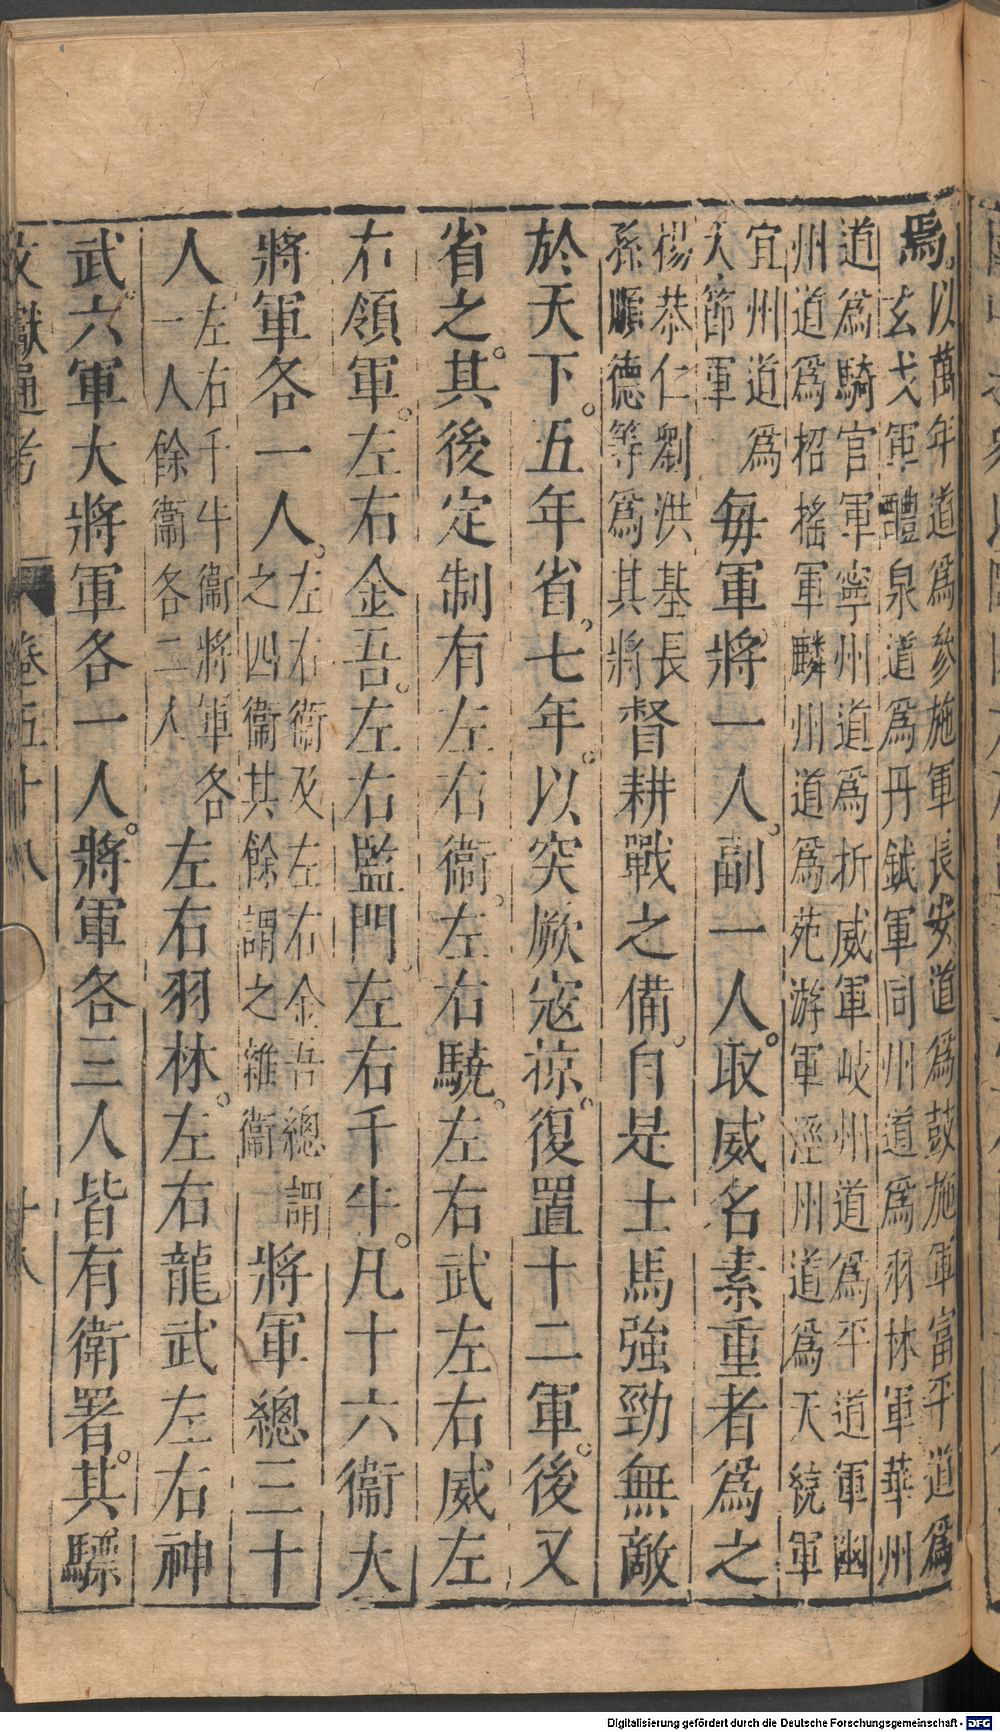 焉。以萬年道為參施軍長安道為鼓施軍富平道為
玄戈軍醴泉道為丹鉞軍同州道為羽林軍華州
道為騎官軍寧州道為折威軍岐州道為平道軍豳
州道為招搖軍麟州道為苑游軍涇州道為天繞軍
宜州道為
天節軍
每軍將一人。副一人。取威名素重者為之
楊恭仁劉洪基長
孫順德等為其將
督耕戰之備。自是士馬強勁無敵
於天下。五年省。七年。以突厥寇掠。復置十二軍。後又
省之。其後定制有左右衞。左右驍。左右武左右威左
右領軍。左右金吾。左右監門。左右千牛。凡十六衞大
將軍各一人。
左右衞及左右金吾總謂
之四衞其餘謂之雜衞
將軍總三十
人
左右千牛衞將軍各
一人餘衞各二人
左右羽林。左右龍武左右神
武。六軍大將軍各一人。將軍各三人皆有衞署。其驃
文獻通考
卷五十八
十八
Digitalisierung gefördert durch die Deutsche Forschungsgemeinschaft - DFG